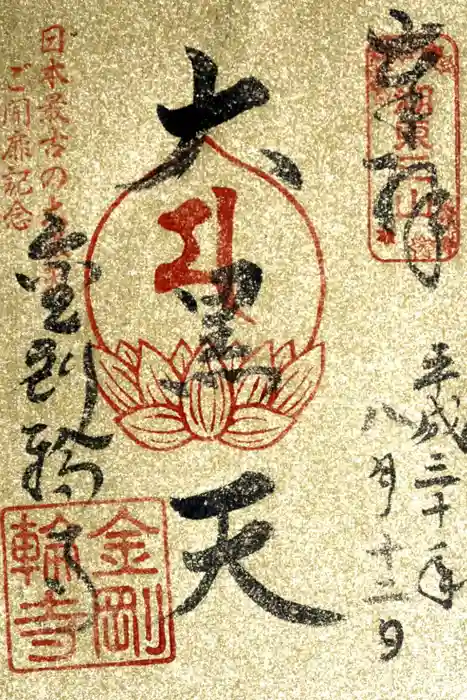 奉拝
湖東三山
平成三十年
八月十二日
大黒天
日本最古の大黒天
ご開扉記念
金剛輪寺
金剛
輪寺